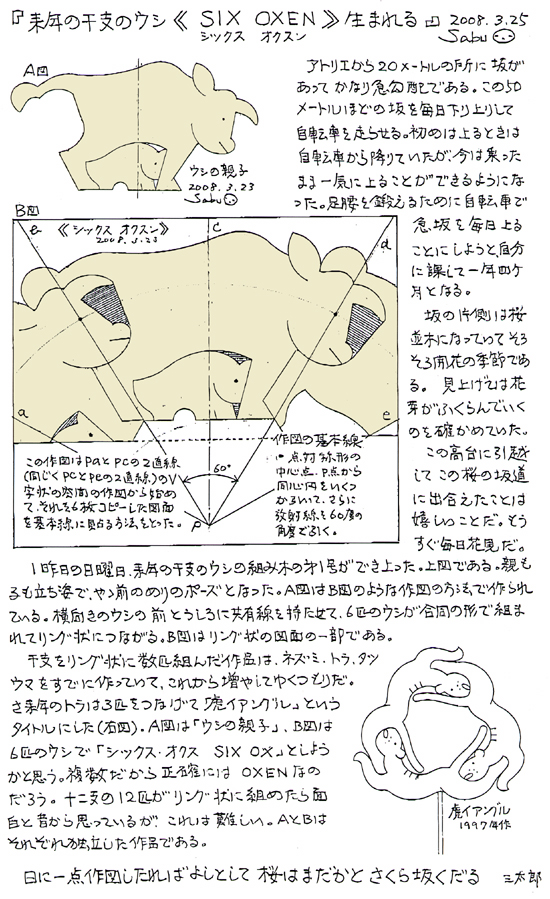 『来年の干支のウシ《 SIX OXEN 》生まれる 2008.3.25
シックス オクスン
Sabu
A図
ウシの親子
2008.3.23
Sabu
アトリエから20メートルの所に坂が
あってかなり急勾配である。この50
メートルほどの坂を毎日下り上りして
自転車を走らせる。初めは上るときは
自転車から降りていたが、今は乗った
まま一気に上ることができるようにな
った。足腰を鍛えるために自転車で
急坂を毎日上る
ことにしようと、自分
に課して一年四ヶ
月となる。
坂の片側は桜
並木になっていてそろ
そろ開花の季節であ
る。見上げては花
芽がふくらんでいく
のを確かめていた。
この高台に引越
してこの桜の坂道
に出合えたことは
嬉しいことだ。もう
すぐ毎日花見だ。
B図
《シックス オクスン》
2008.3.23
c
d
a
e
この作図はPaとPcの2直線
(同じくPcとPeの2直線)のV
字状の空間の作図から始め
て、それを6枚コピーした図面
を基本線に貼る方法をとった。
60°
P
作図の基本線
は点対称形の
中心点、P点から
同心円をいくつ
かえがいて、さらに
放射線を60度の
角度で引く。
1昨日の日曜日、来年の干支のウシの組み木の第1号ができ上った。上図である。親も
子も立ち姿で、やゝ前のめりのポーズとなった。A図はB図のような作図の方法で作られ
ている。横向きのウシの前とうしろに共有線を持たせて、6匹のウシが合同の形で組ま
れてリング状につながる。B図はリング状の図面の一部である。
干支をリング状に数匹組んだ作品は、ネズミ、トラ、タツ
ウマをすでに作っていて、これから増やしてゆくつもりだ。
さ来年のトラは3匹をつなげて「虎イアングル」という
タイトルにした(右図)。A図は「ウシの親子」、B図は
6匹のウシで「シックス・オクス SIX OX」としよう
かと思う。複数だから正確には OXEN なの
だろう。十二支の12匹がリング状に組めたら面
白いと昔から思っているが、これは難しい。AとBは
それぞれ独立した作品である。
虎イアングル
1997年作
日に一点作図したればよしとして 桜はまだかと さくら坂くだる 三太郎